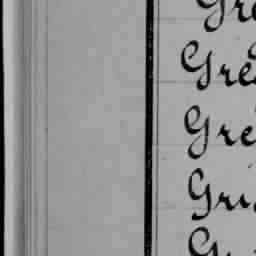 Gre
Gre
Gre
Gri
G